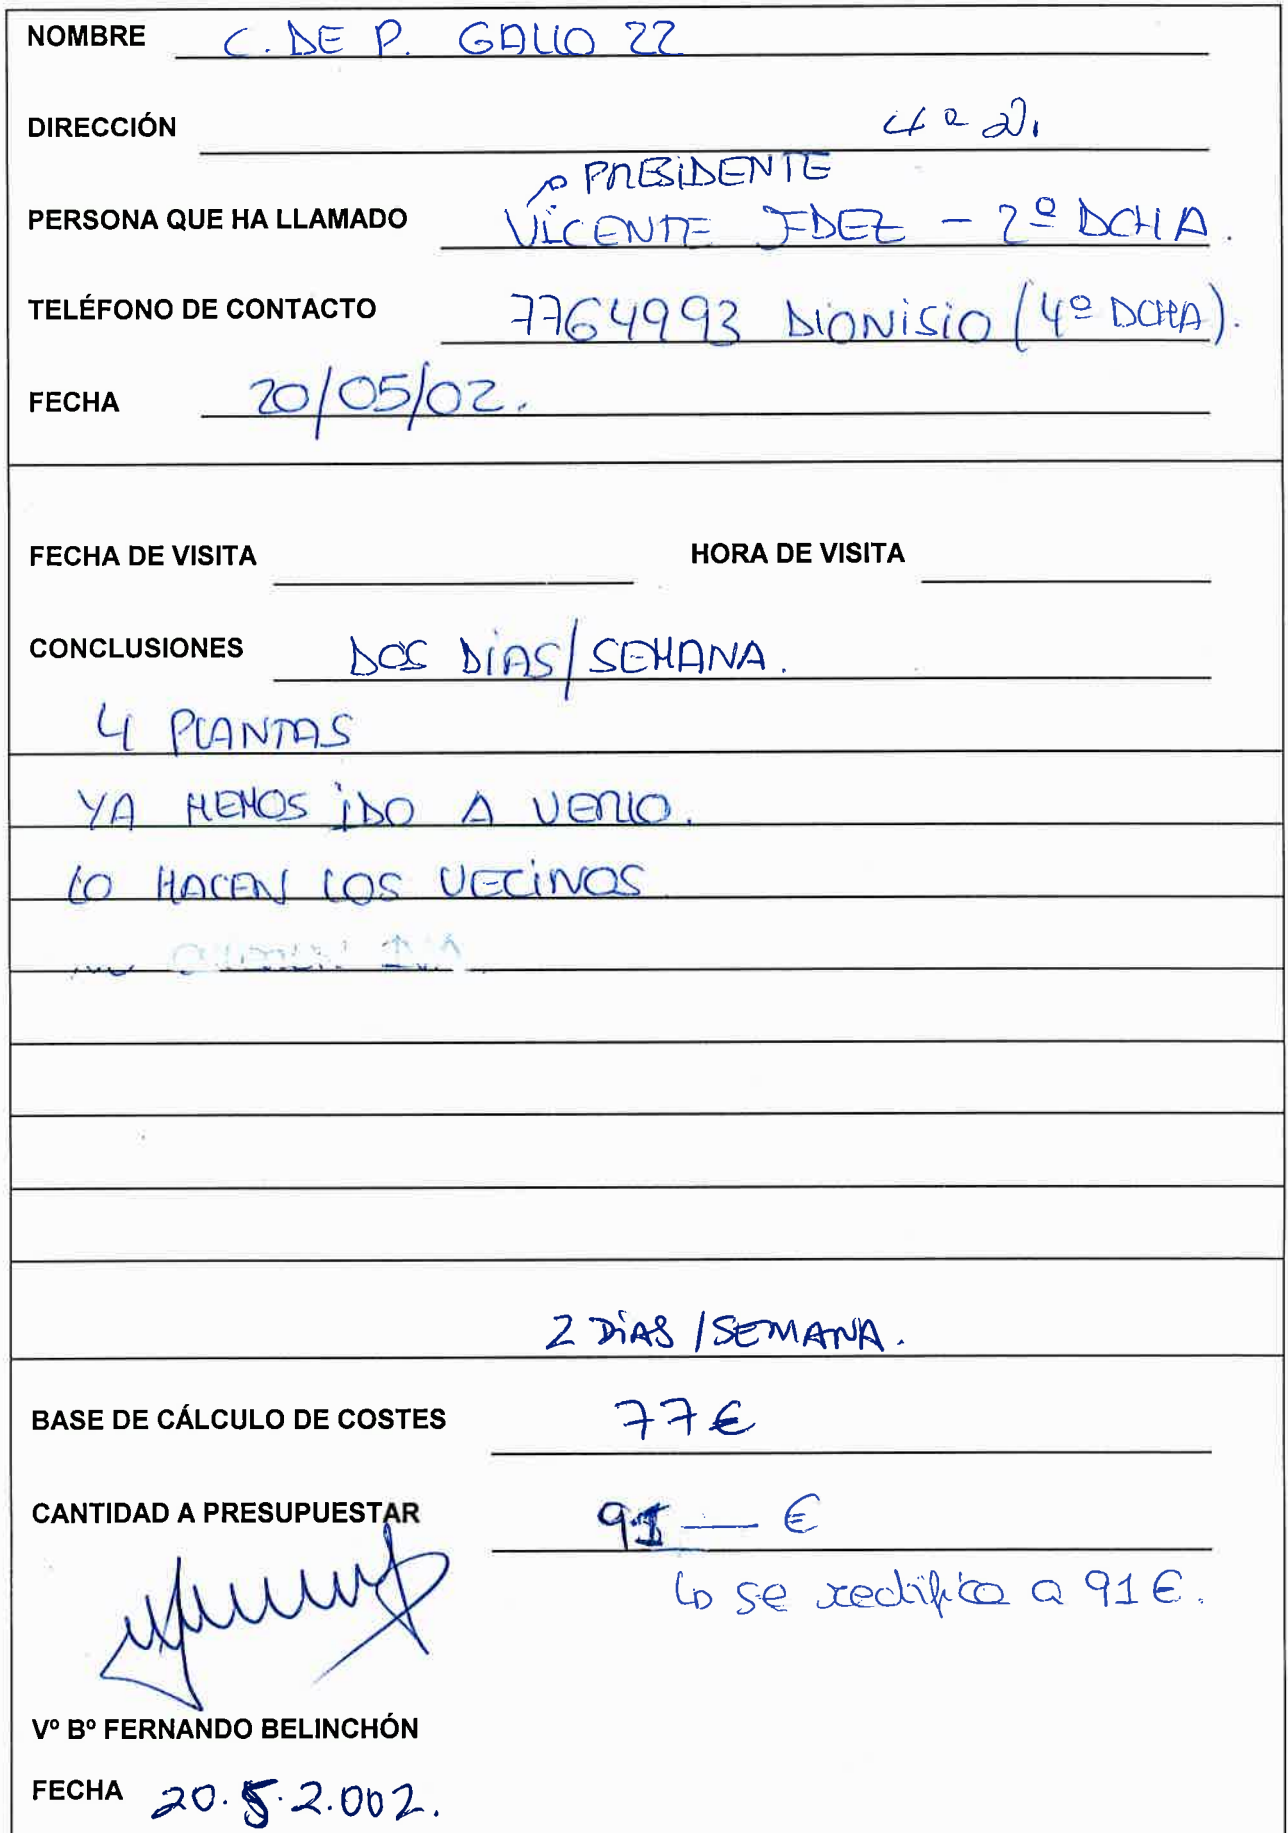 NOMBRE C. DE P. GALLO 22
DIRECCIÓN 4º D.
PRESIDENTE
PERSONA QUE HA LLAMADO VICENTE FDEZ - 2º DCHA.
TELÉFONO DE CONTACTO 7764993 DIONISIO (4º DCHA).
FECHA 20/05/02.
FECHA DE VISITA HORA DE VISITA
CONCLUSIONES DOS DÍAS/SEMANA.
4 PLANTAS
YA HEMOS IDO A VERLO.
LO HACEN LOS VECINOS
2 DÍAS/SEMANA.
BASE DE CÁLCULO DE COSTES 77€
CANTIDAD A PRESUPUESTAR 91 — €
se rectifica a 91€.
Vº Bº FERNANDO BELINCHÓN
FECHA 20.5.2.002.